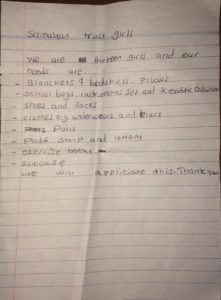 Samaritan trust girls
We are thirteen girls and our
needs are
- Blanckets & bedshits, Pillows
- School bags, instruments set and Scientific Calculator
- Shoes and Socks
- clothes e.g underwears and
- Pails
- Soap and lotions
- exercise books
- suitcase
We will appliciate this. Thank you